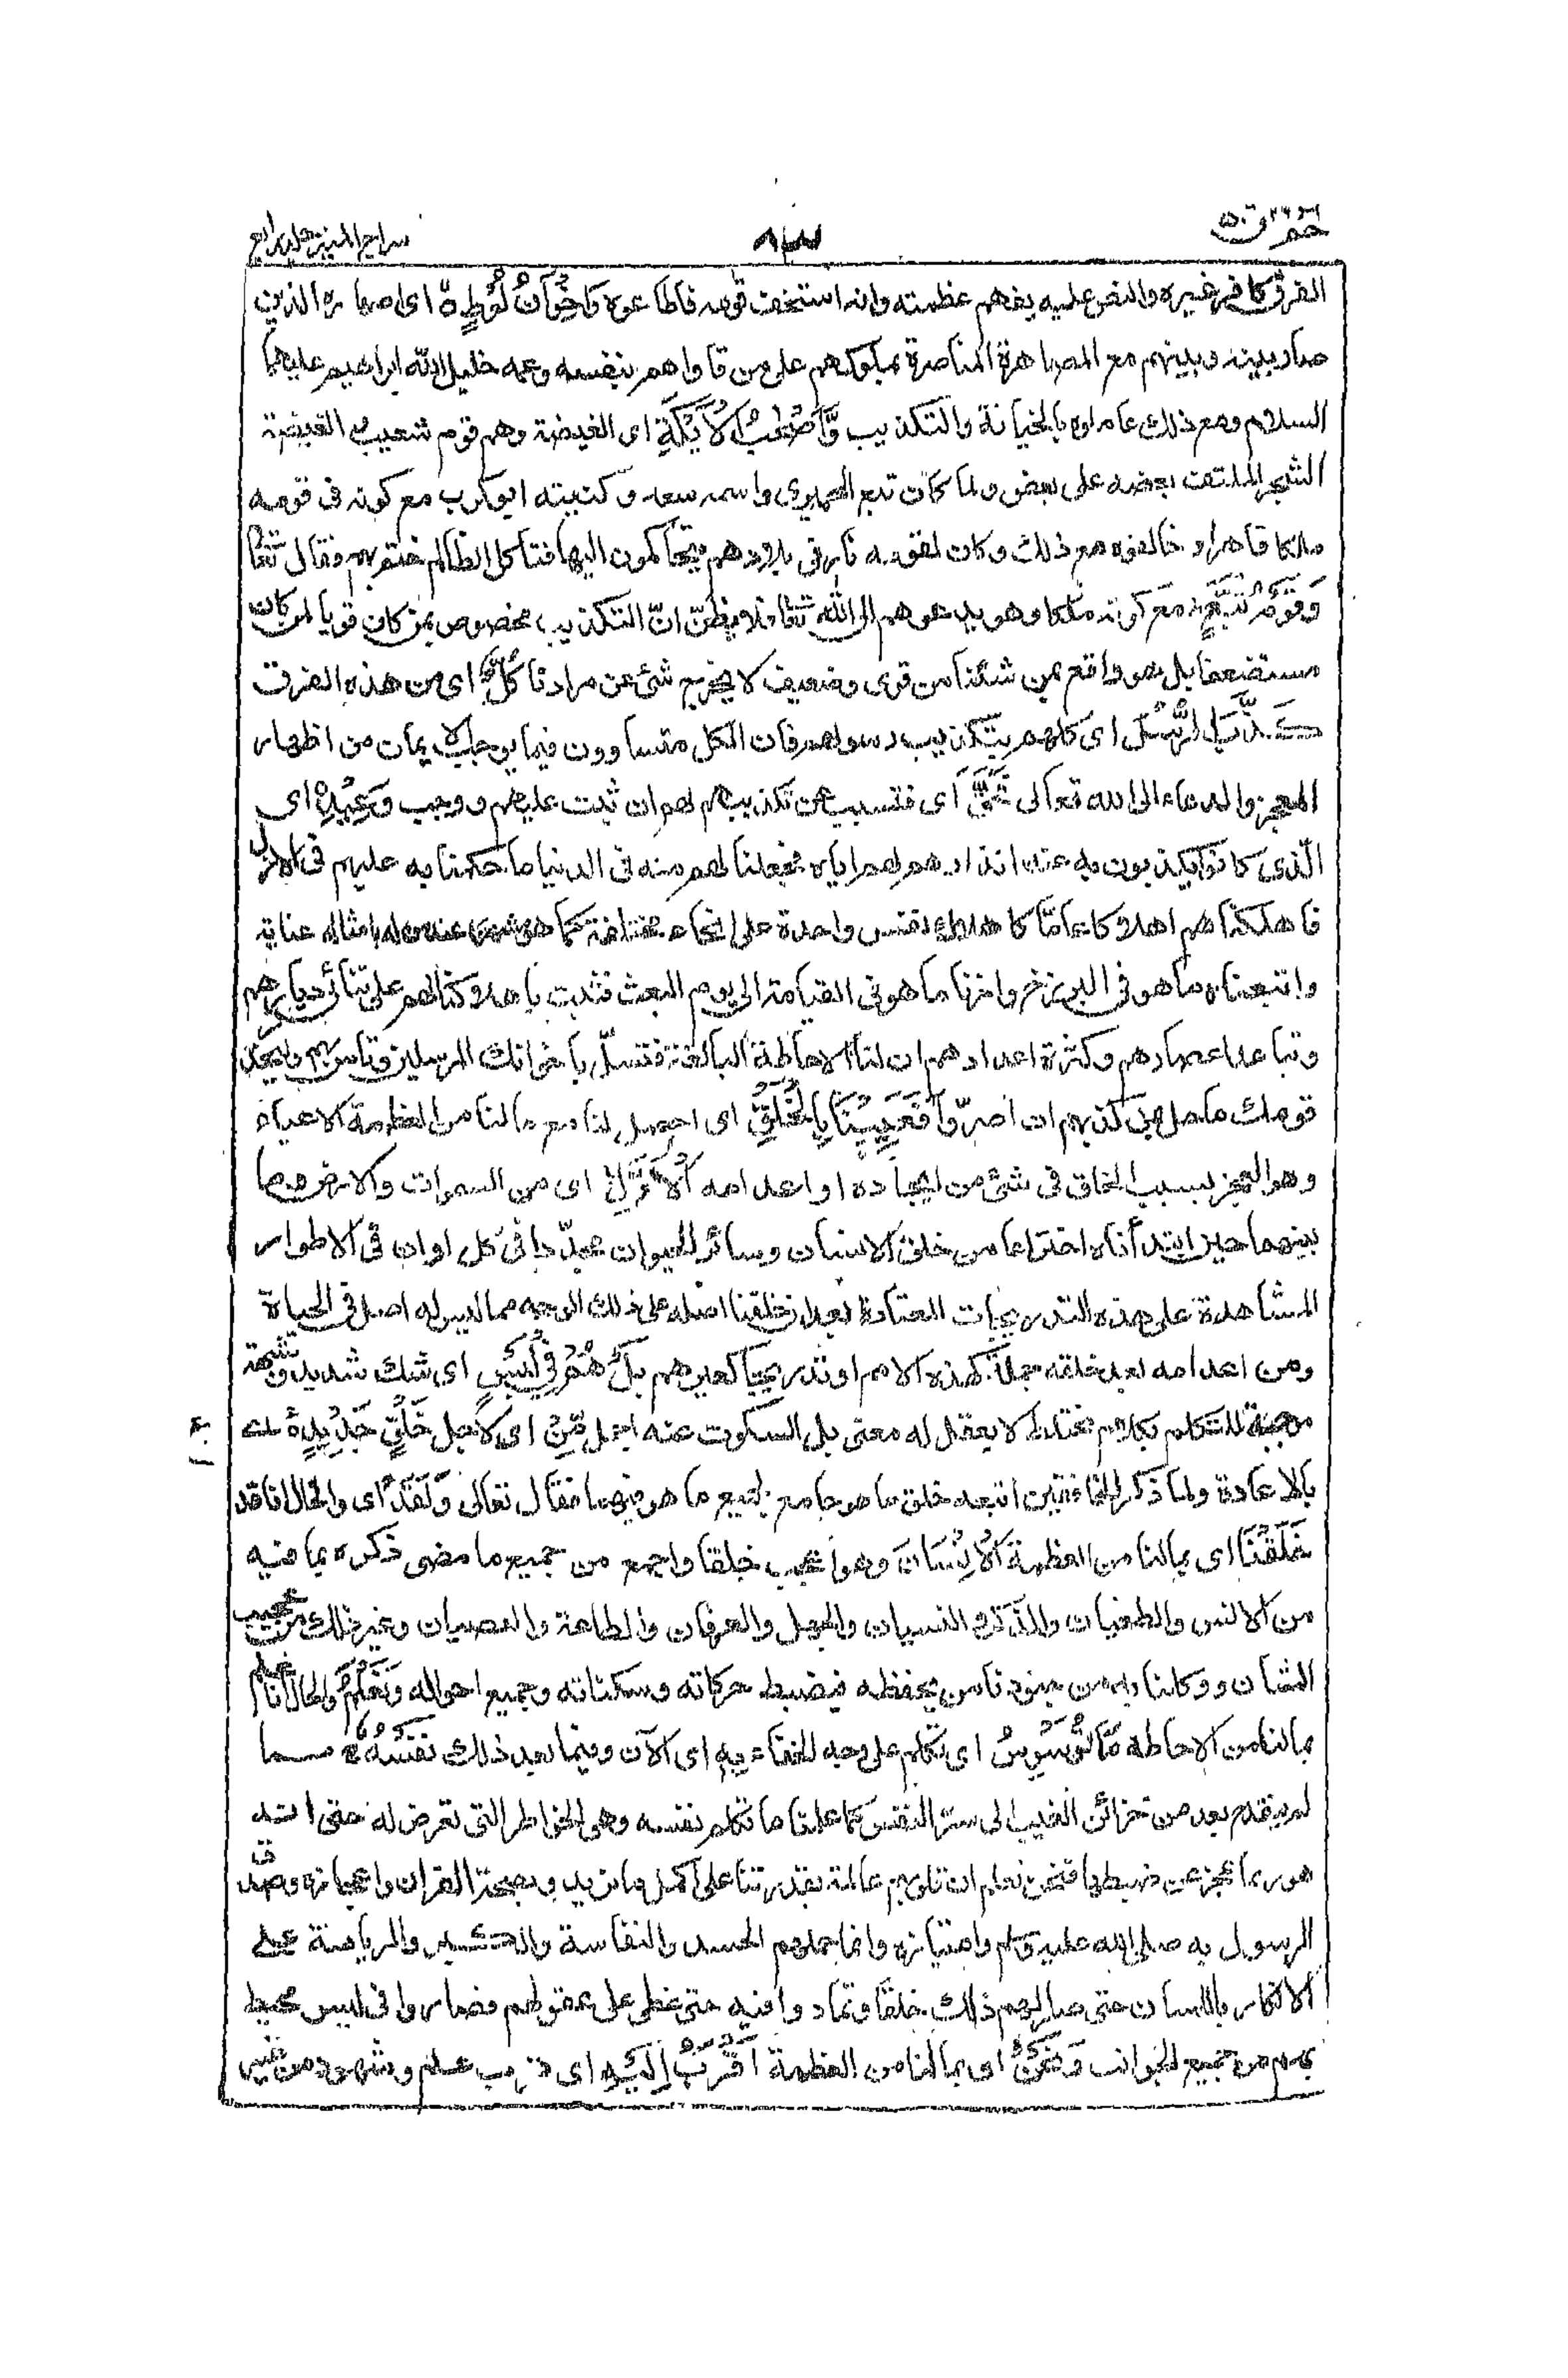 حم ٢٦ ق ٥٠
٨٣
سراج المنير جلد رابع
الغرق كافر غيره والنص عليه يفهم عظمته وانه استخف قومه فاطاعوه وَاِخْوَانُ لُوْطٍ اى اصهاره الذين
صار بينه وبينهم مع المصاهرة المناصرة بملوكهم على من قاواهم بنفسه وعمه خليل الله ابراهيم عليهما
السلام ومع ذلك عاملوه بالخيانة والتكذيب وَّاَصْحٰبُ الْاَيْكَةِ اى الغيضة وهم قوم شعيب والغيضة
الشجر الملتف بعضه على بعض ولما كان تبع الحميرى واسمه سعد وكنيته ابو كرب مع كونه فى قومه
ملكا قاهرا وخالفوه مع ذلك وكان لقومه نار فى بلادهم يتحاكمون اليها فتأكل الظالم ختم بهم فقال تعالى
وَقَوْمُ تُبَّعٍ مع كونه ملكا وهو يدعوهم الى الله تعالى فلا يظن انّ التكذيب مخصوص بمن كان قويا لمن كان
مستضعفا بل هو واقع بمن شئنا من قوى وضعيف لا يخرج شئ عن مرادنا كُلٌّ اى من هذه الفرق
كَذَّبَ الرُّسُلَ اى كلهم بتكذيب رسولهم فان الكل متساوون فيما يوجب الايمان من اظهار
المعجز والدعاء الى الله تعالى فَحَقَّ اى فتسبب عن تكذيبهم لهم ان ثبت عليهم ووجب وَعِيْدِ اى
الّذى كانوا يكذبون به عند انذارهم لهم اياه فجعلنا لهم منه فى الدنيا ما حكمنا به عليهم فى الازل
فاهلكناهم اهلاكا عامّا كاهلاك نفس واحدة على انحاء مختلفة كما هو مشهور عند من له بامثاله عناية
واتبعناه ما هو فى البرزخ واخرنا ما هو فى القيامة الى يوم البعث فثبت باهلاكنا لهم على تنائى ديارهم
وتباعد اعصارهم وكثرة اعدادهم ان لنا الاحاطة البالغة فتسلّ باخوانك المرسلين وتأس بهم وليحذر
قومك ما حل بمن كذبهم ان اصرّوا اَفَعَيِيْنَا بِالْخَلْقِ اى احصل لنا مع ما لنا من العظمة الاعياء
وهو العجز بسبب الخلق فى شئ من ايجاده او اعدامه الْاَوَّلِ اى من السموات والارض وما
بينهما حين ابتدأناه اختراعا من خلق الانسان وسائر الحيوان مجدّدا فى كل اوان فى الاطوار
المشاهدة على هذه التدريجات المعتادة بعد ان خلقنا اصله على ذلك الوجه مما ليس له اصل فى الحياة
ومن اعدامه بعد خلقه جملة كهذه الامم او تدريجيا كغيرهم بَلْ هُمْ فِىْ لَبْسٍ اى شك شديد وشبهة
موجبة للتكلم بكلام مختلط لا يعقل له معنى بل السكوت عنه اجمل مِّنْ اى لاجل خَلْقٍ جَدِيْدٍ
بالاعادة ولما ذكر الخافقين اتبعه خلق ما هو جامع لجميع ما هو فيهما فقال تعالى وَلَقَدْ اى والحال انا قد
خَلَقْنَا اى بما لنا من العظمة الْاِنْسَانَ وهو اعجب خلقا واجمع من جميع ما مضى ذكره بما فيه
من الانس والطغيان والذكر والنسيان والجهل والعرفان والطاعة والعصيان وغير ذلك من عجيب
الشان ووكلنا به من جنودنا من يحفظه فيضبط حركاته وسكناته وجميع احواله وَنَعْلَمُ والحال انا نعلم
بما لنا من الاحاطة مَا تُوَسْوِسُ اى تكلم على وجه الخفاء بِهٖ اى الآن وفيما بعد ذلك نَفْسُهٗ مما
لم ينقدح بعد من خزائن الغيب الى سرّ النفس كما علمنا ما تكلم نفسه وهى الخواطر التى تعرض له حتى انه
هو ربما عجز عن ضبطها فنحن نعلم ان قلوبهم عالمة بقدرتنا على اكمل ما نريد وبصحة القران واعجازه وصدق
الرسول به صلى الله عليه وسلم وامتيازه وانما حملهم الحسد والنفاسة والكبر والرياسة على
الانكار باللسان حتى صار لهم ذلك خلقا وتمادوا فيه حتى غطى على عقولهم فصاروا فى لبس محيط
بهم من جميع الجوانب وَنَحْنُ اى بما لنا من العظمة اَقْرَبُ اِلَيْهِ اى قرب علم وشهود من غير